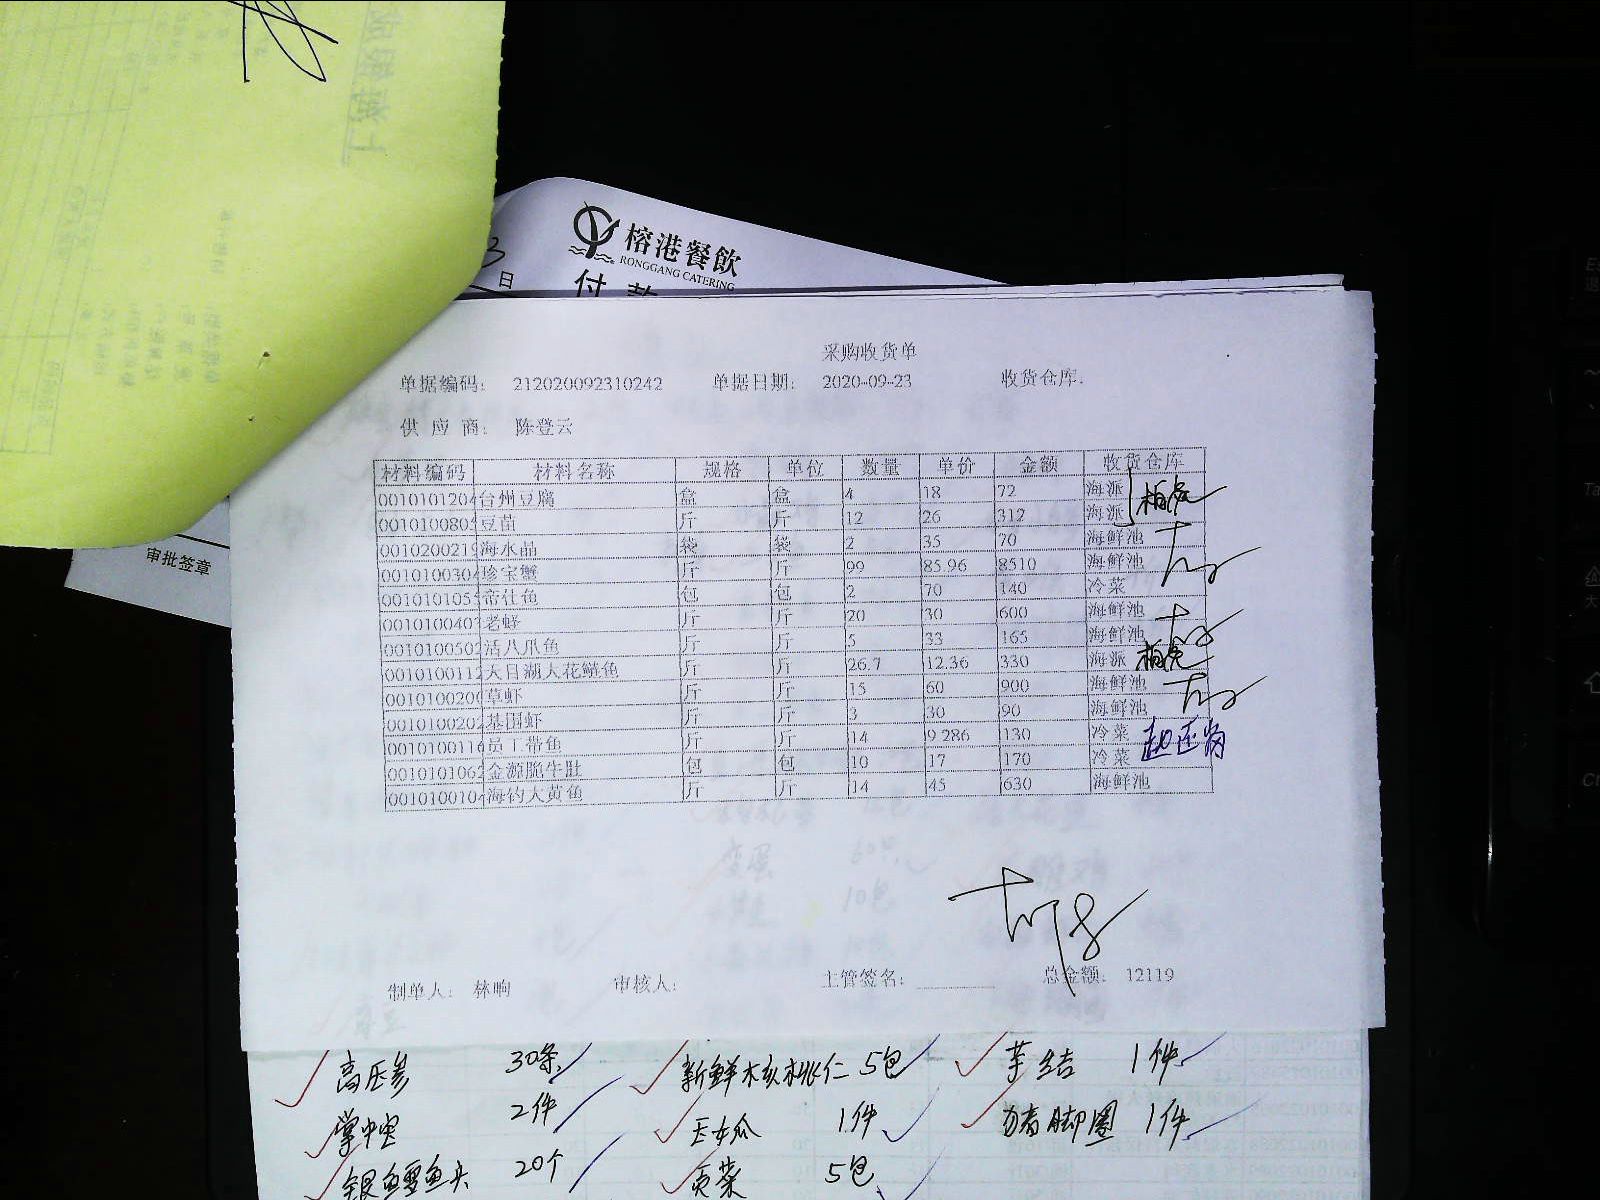 榕港餐飲
RONGGANG CATERING
3日
付款
审批签章
采购收货单
单据编码: 212020092310242 单据日期: 2020-09-23 收货仓库:
供应商: 陈登云
材料编码 材料名称 规格 单位 数量 单价 金额 收货仓库
0010101204 台州豆腐 盒 盒 4 18 72 海派
001010080 豆苗 斤 斤 12 26 312 海派
001020021 海水晶 袋 袋 2 35 70 海鲜池
001010030 珍宝蟹 斤 斤 99 85.96 8510 海鲜池
001010105 帝仕鱼 包 包 2 70 140 冷菜
001010040 老蛏 斤 斤 20 30 600 海鲜池
001010050 活八爪鱼 斤 斤 5 33 165 海鲜池
001010011 大目湖大花鲢鱼 斤 斤 26.7 12.36 330 海派
001010020 草虾 斤 斤 15 60 900 海鲜池
001010020 基围虾 斤 斤 3 30 90 海鲜池
001010011 员工带鱼 斤 斤 14 9.286 130 冷菜
001010106 金源脆牛肚 包 包 10 17 170 冷菜
001010010 海钓大黄鱼 斤 斤 14 45 630 海鲜池
制单人: 林晌 审核人: 主管签名: 总金额: 12119
高压参 30条 新鲜核桃仁 5包 芋结 1件
掌中宝 2件 玉女瓜 1件 猪脚圈 1件
银鳕鱼头 20个 贡菜 5包